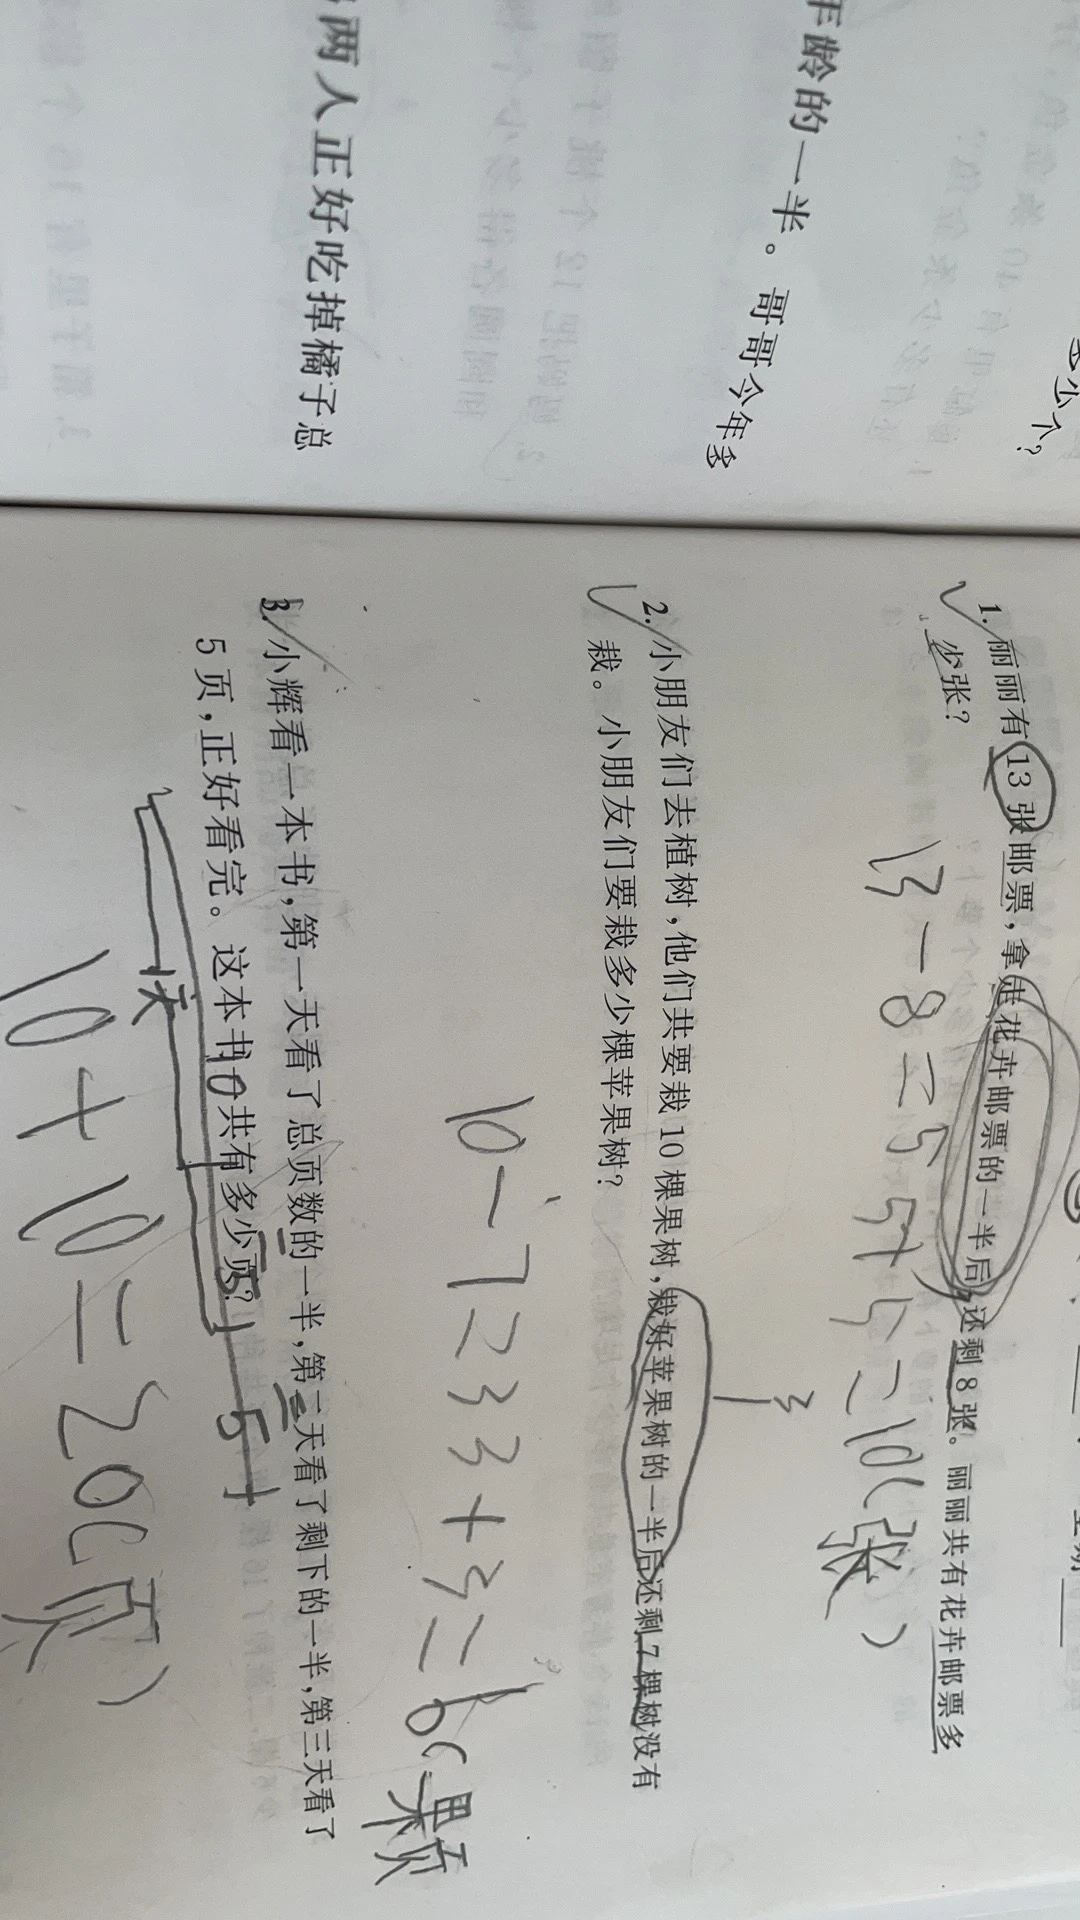 多少个?
年龄的一半。哥哥今年多
两人正好吃掉橘子总
1. 丽丽有13张邮票,拿走花卉邮票的一半后,还剩8张。丽丽共有花卉邮票多
少张?
13-8=5 5+5=10(张)
2. 小朋友们去植树,他们共要栽10棵果树,栽好苹果树的一半后还剩7棵树没有
栽。小朋友们要栽多少棵苹果树?
3
10-7=3 3+3=6(颗
3. 小辉看一本书,第一天看了总页数的一半,第二天看了剩下的一半,第三天看了
5页,正好看完。这本书共有多少页?
10 5 5
天
10+10=20(页)